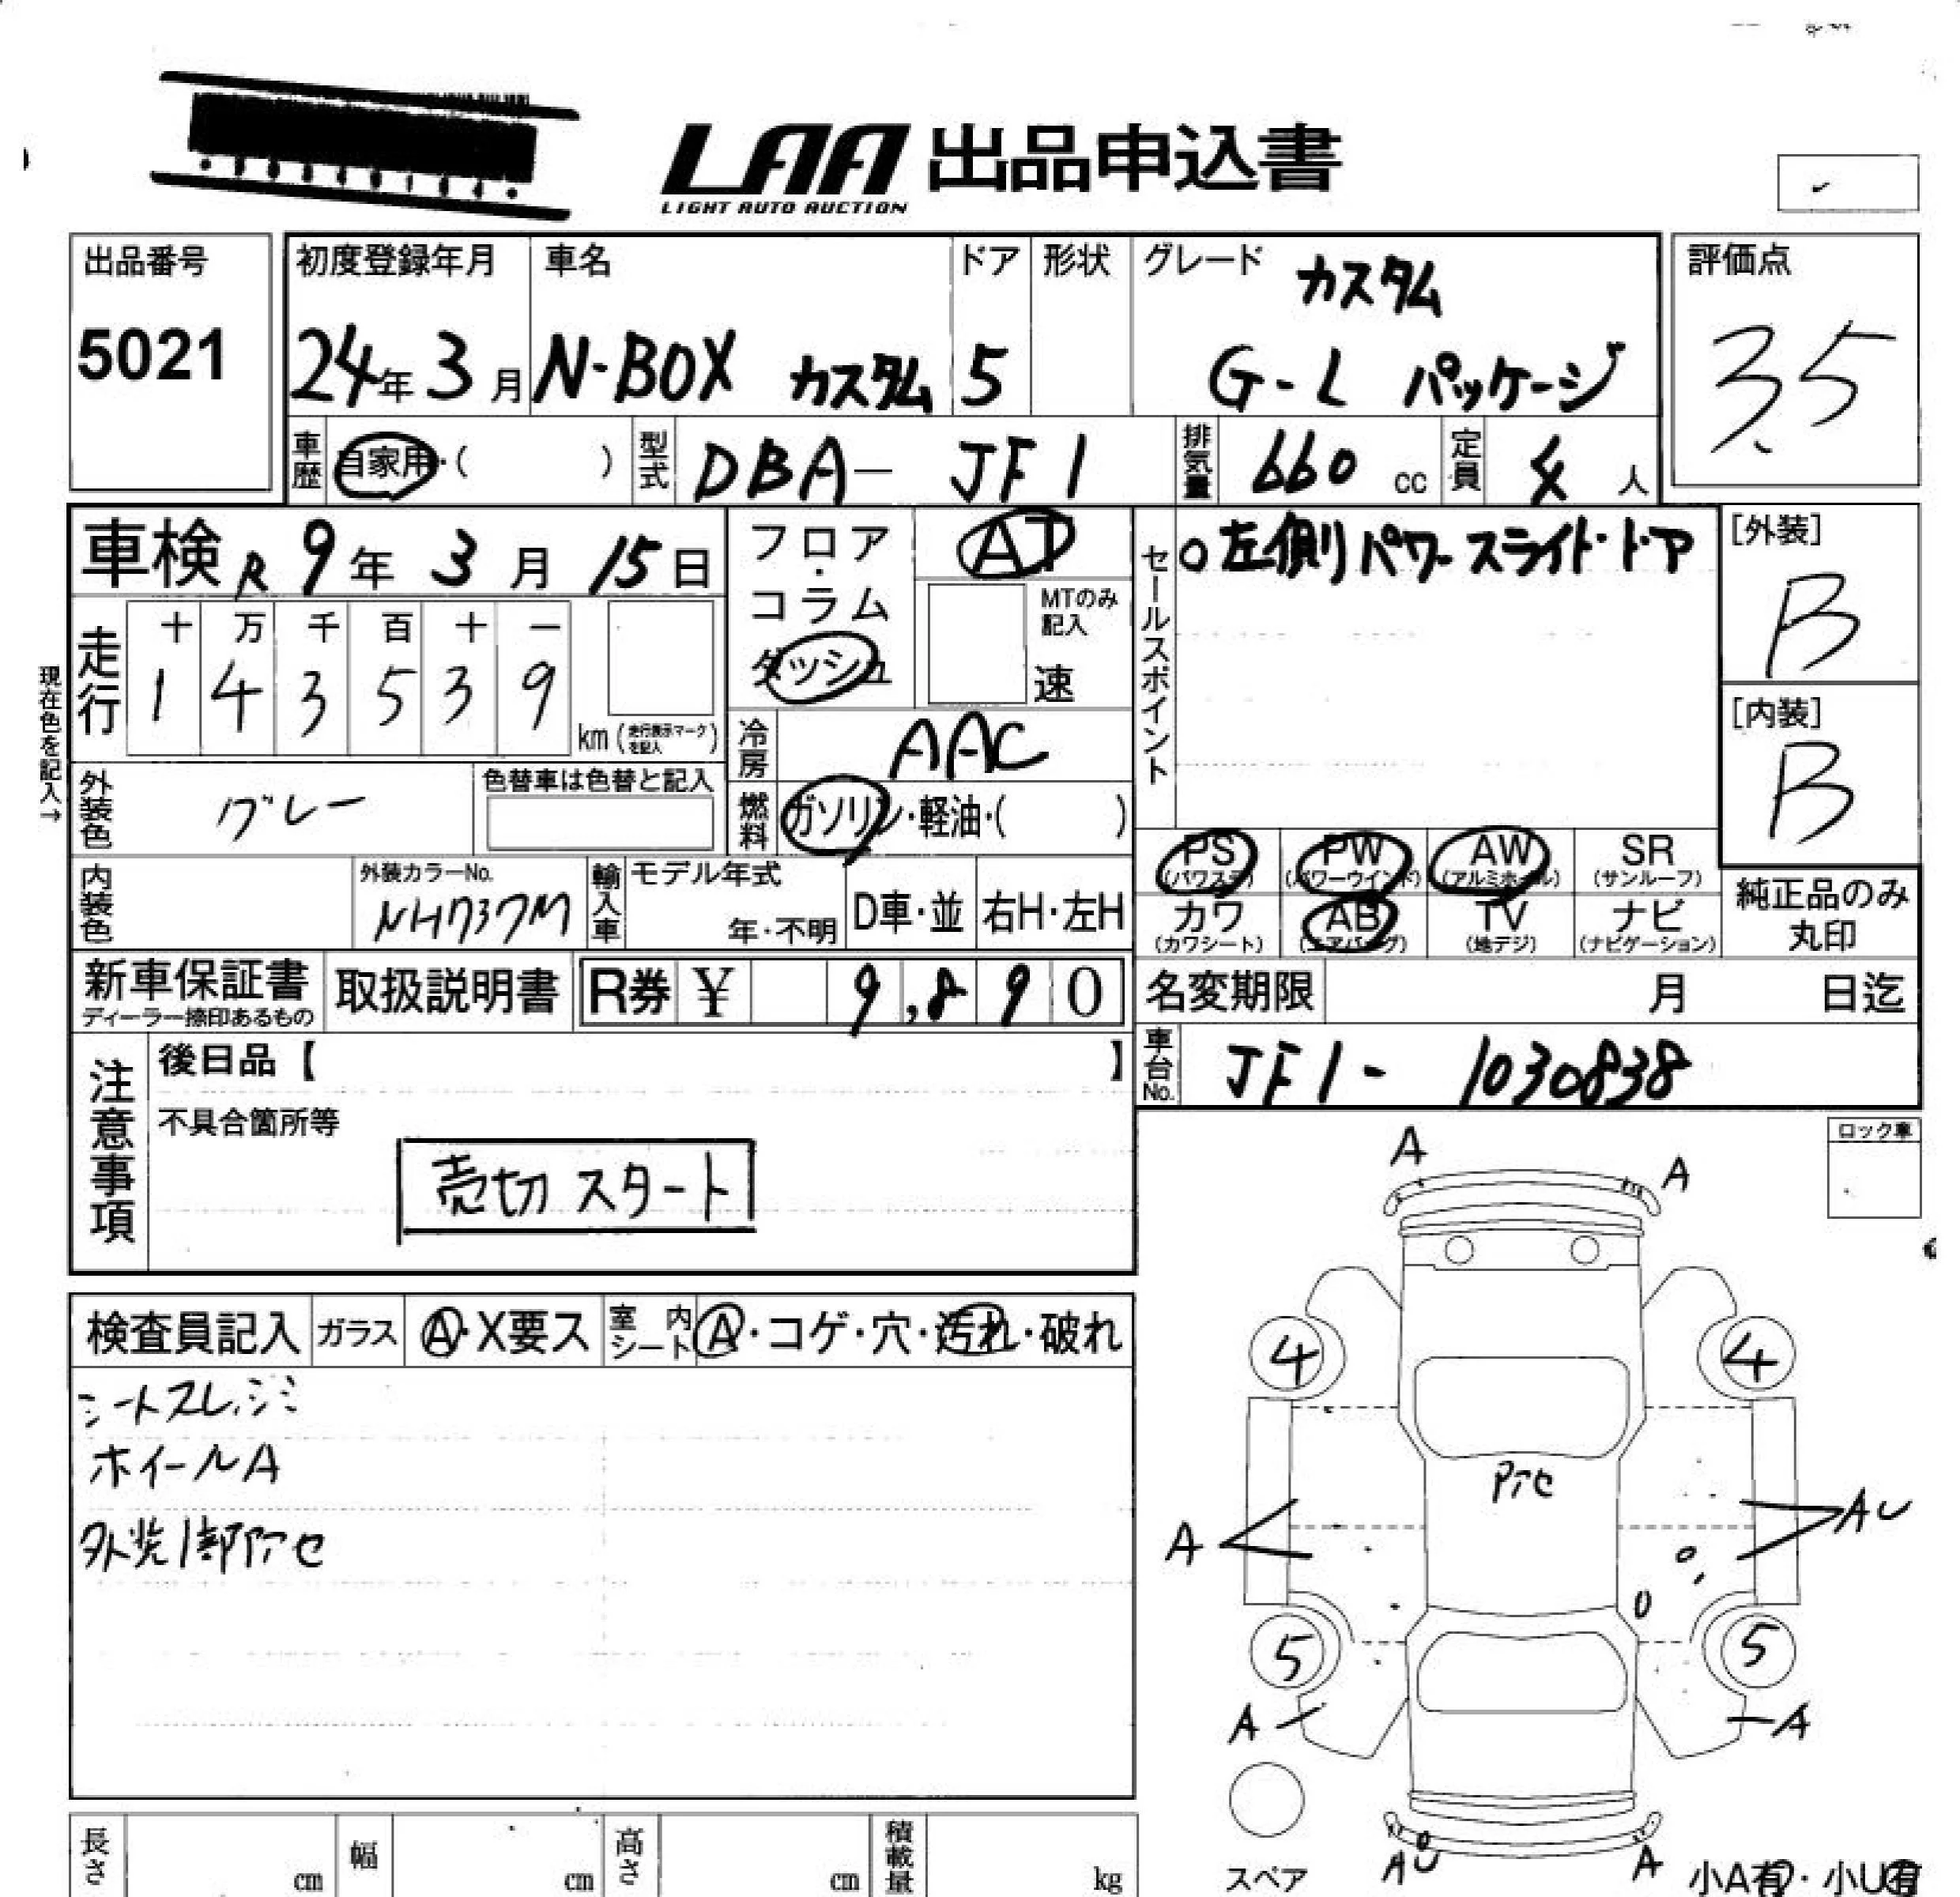 LAA 出品申込書
LIGHT AUTO AUCTION
出品番号
5021
初度登録年月
24年3月
車名
N-BOX カスタム
ドア
5
形状
グレード
カスタム
G-L パッケージ
評価点
3.5
車歴 自家用・( )
型式 DBA- JF1
排気量 660 cc
定員 4 人
車検 R9年3月15日
走行
十 万 千 百 十 一
1 4 3 5 3 9
km (走行表示マークを記入)
現在色を記入→
外装色 グレー
色替車は色替と記入
内装色
外装カラーNo.
NH737M
フロア・コラム
ダッシュ
AT
MTのみ記入
速
冷房 AAC
燃料 ガソリン・軽油・( )
輸入車
モデル年式
年・不明
D車・並
右H・左H
セールスポイント
○左側パワースライドドア
[外装]
B
[内装]
B
PS (パワステ)
PW (パワーウインド)
AW (アルミホール)
SR (サンルーフ)
カワ (カワシート)
AB (エアバッグ)
TV (地デジ)
ナビ (ナビゲーション)
純正品のみ
丸印
新車保証書
ディーラー捺印あるもの
取扱説明書
R券 ¥ 9,890
名変期限 月 日迄
車台No. JF1- 1030838
注意事項
後日品【 】
不具合箇所等
売切スタート
ロック車
検査員記入
ガラス A・X要ス
室内シート A・コゲ・穴・汚れ・破れ
ホイールA
A
A
4
4
A
AU
5
5
A
A
AU
A
スペア
小A有・小U有
長さ cm
幅 cm
高さ cm
積載量 kg